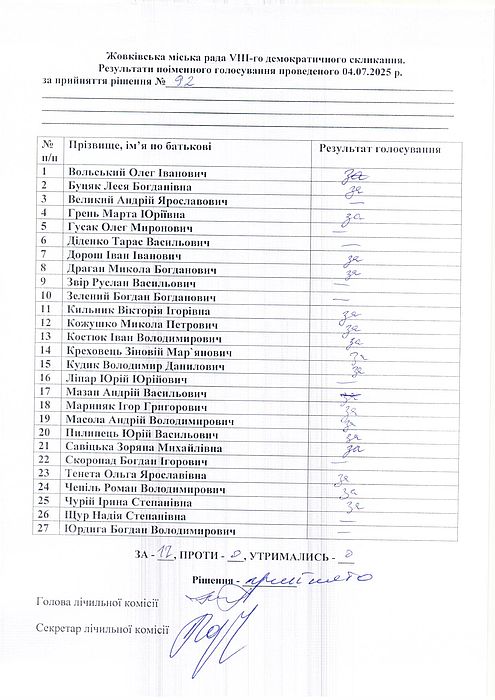 Жовківська міська рада VIII-го демократичного скликання.
Результати поіменного голосування проведеного 04.07.2025 р.
за прийняття рішення № 92
№ п/п Прізвище, ім’я по батькові Результат голосування
1 Вольський Олег Іванович за
2 Буцяк Леся Богданівна за
3 Великий Андрій Ярославович —
4 Грень Марта Юріївна за
5 Гусак Олег Миронович —
6 Діденко Тарас Васильович —
7 Дорош Іван Іванович за
8 Драган Микола Богданович за
9 Звір Руслан Васильович —
10 Зелений Богдан Богданович —
11 Кильник Вікторія Ігорівна за
12 Кожушко Микола Петрович за
13 Костюк Іван Володимирович за
14 Креховець Зіновій Мар`янович за
15 Кудик Володимир Данилович за
16 Ліпар Юрій Юрійович —
17 Мазан Андрій Васильович за
18 Мариняк Ігор Григорович за
19 Масола Андрій Володимирович за
20 Пилипець Юрій Васильович за
21 Савіцька Зоряна Михайлівна за
22 Скоропад Богдан Ігорович —
23 Тенета Ольга Ярославівна за
24 Чепіль Роман Володимирович за
25 Чурій Ірина Степанівна за
26 Щур Надія Степанівна —
27 Юрдига Богдан Володимирович —
ЗА - 17, ПРОТИ - 0, УТРИМАЛИСЬ - 0
Рішення - прийнято
Голова лічильної комісії
Секретар лічильної комісії